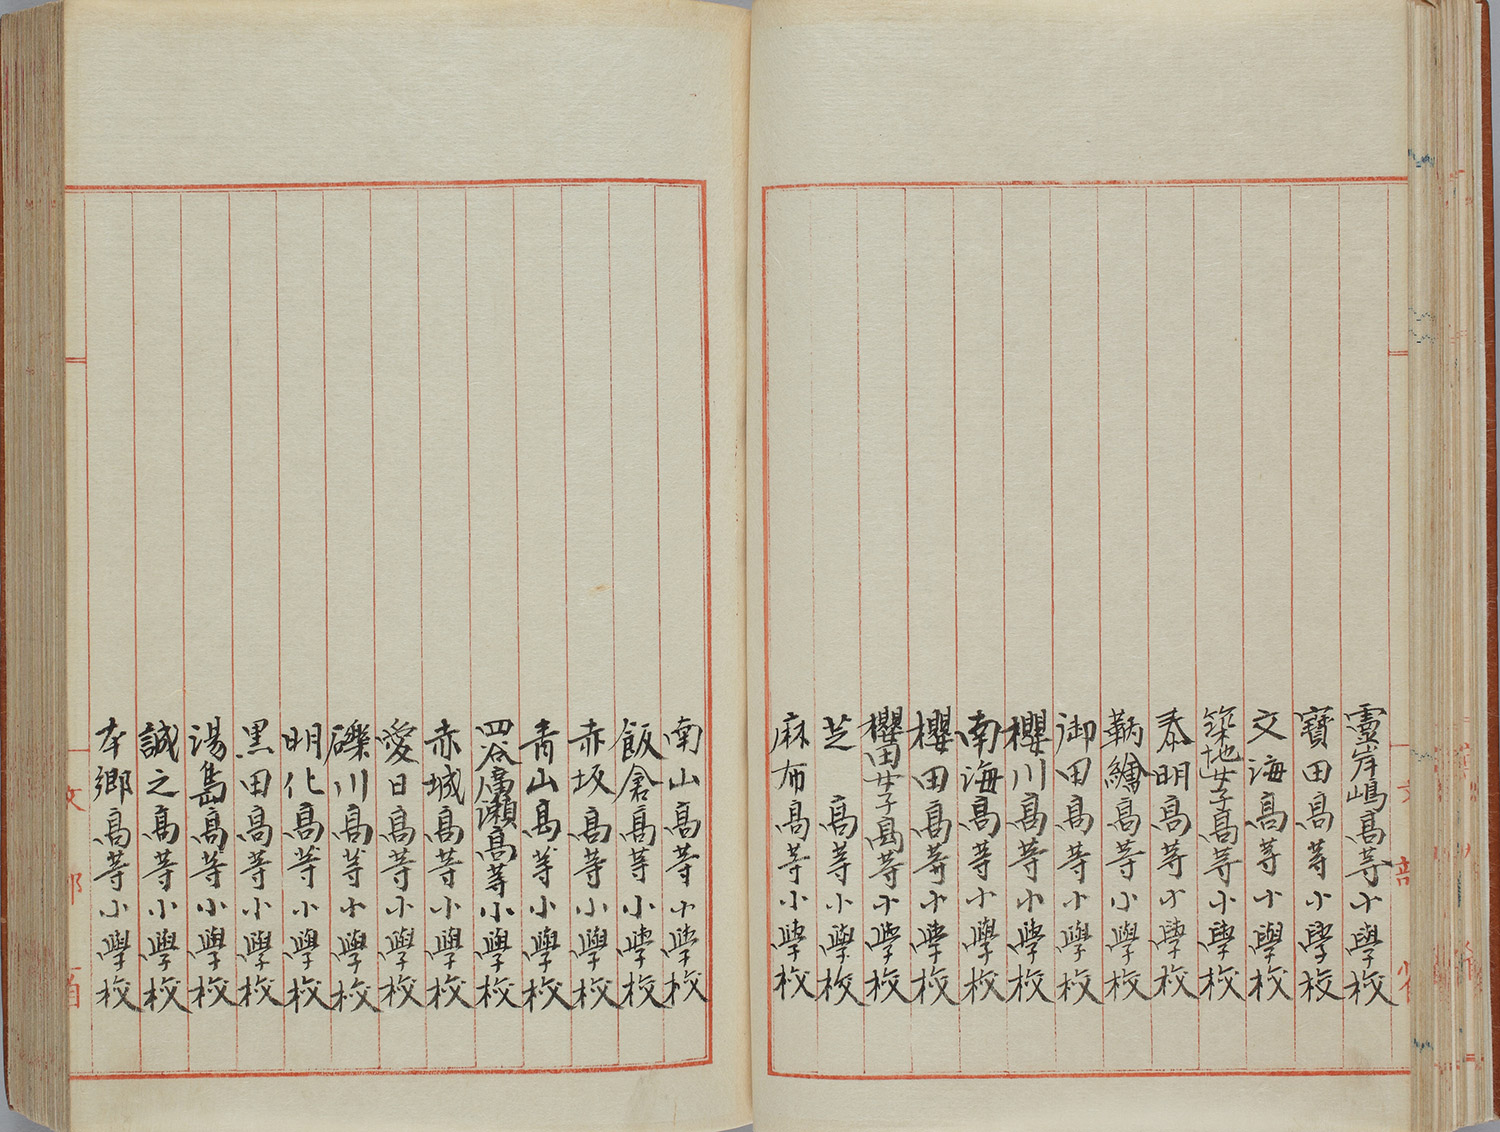 靈岸嶋高等小學校
寶田高等小學校
文海高等小學校
築地女子高等小學校
泰明高等小學校
鞆繪高等小學校
御田高等小學校
櫻川高等小學校
南海高等小學校
櫻田高等小學校
櫻田女子高等小學校
芝高等小學校
麻布高等小學校
南山高等小學校
飯倉高等小學校
赤坂高等小學校
青山高等小學校
四谷廣瀬高等小學校
赤城高等小學校
愛日高等小學校
礫川高等小學校
明化高等小學校
黒田高等小學校
湯島高等小學校
誠之高等小學校
本郷高等小學校
文部省